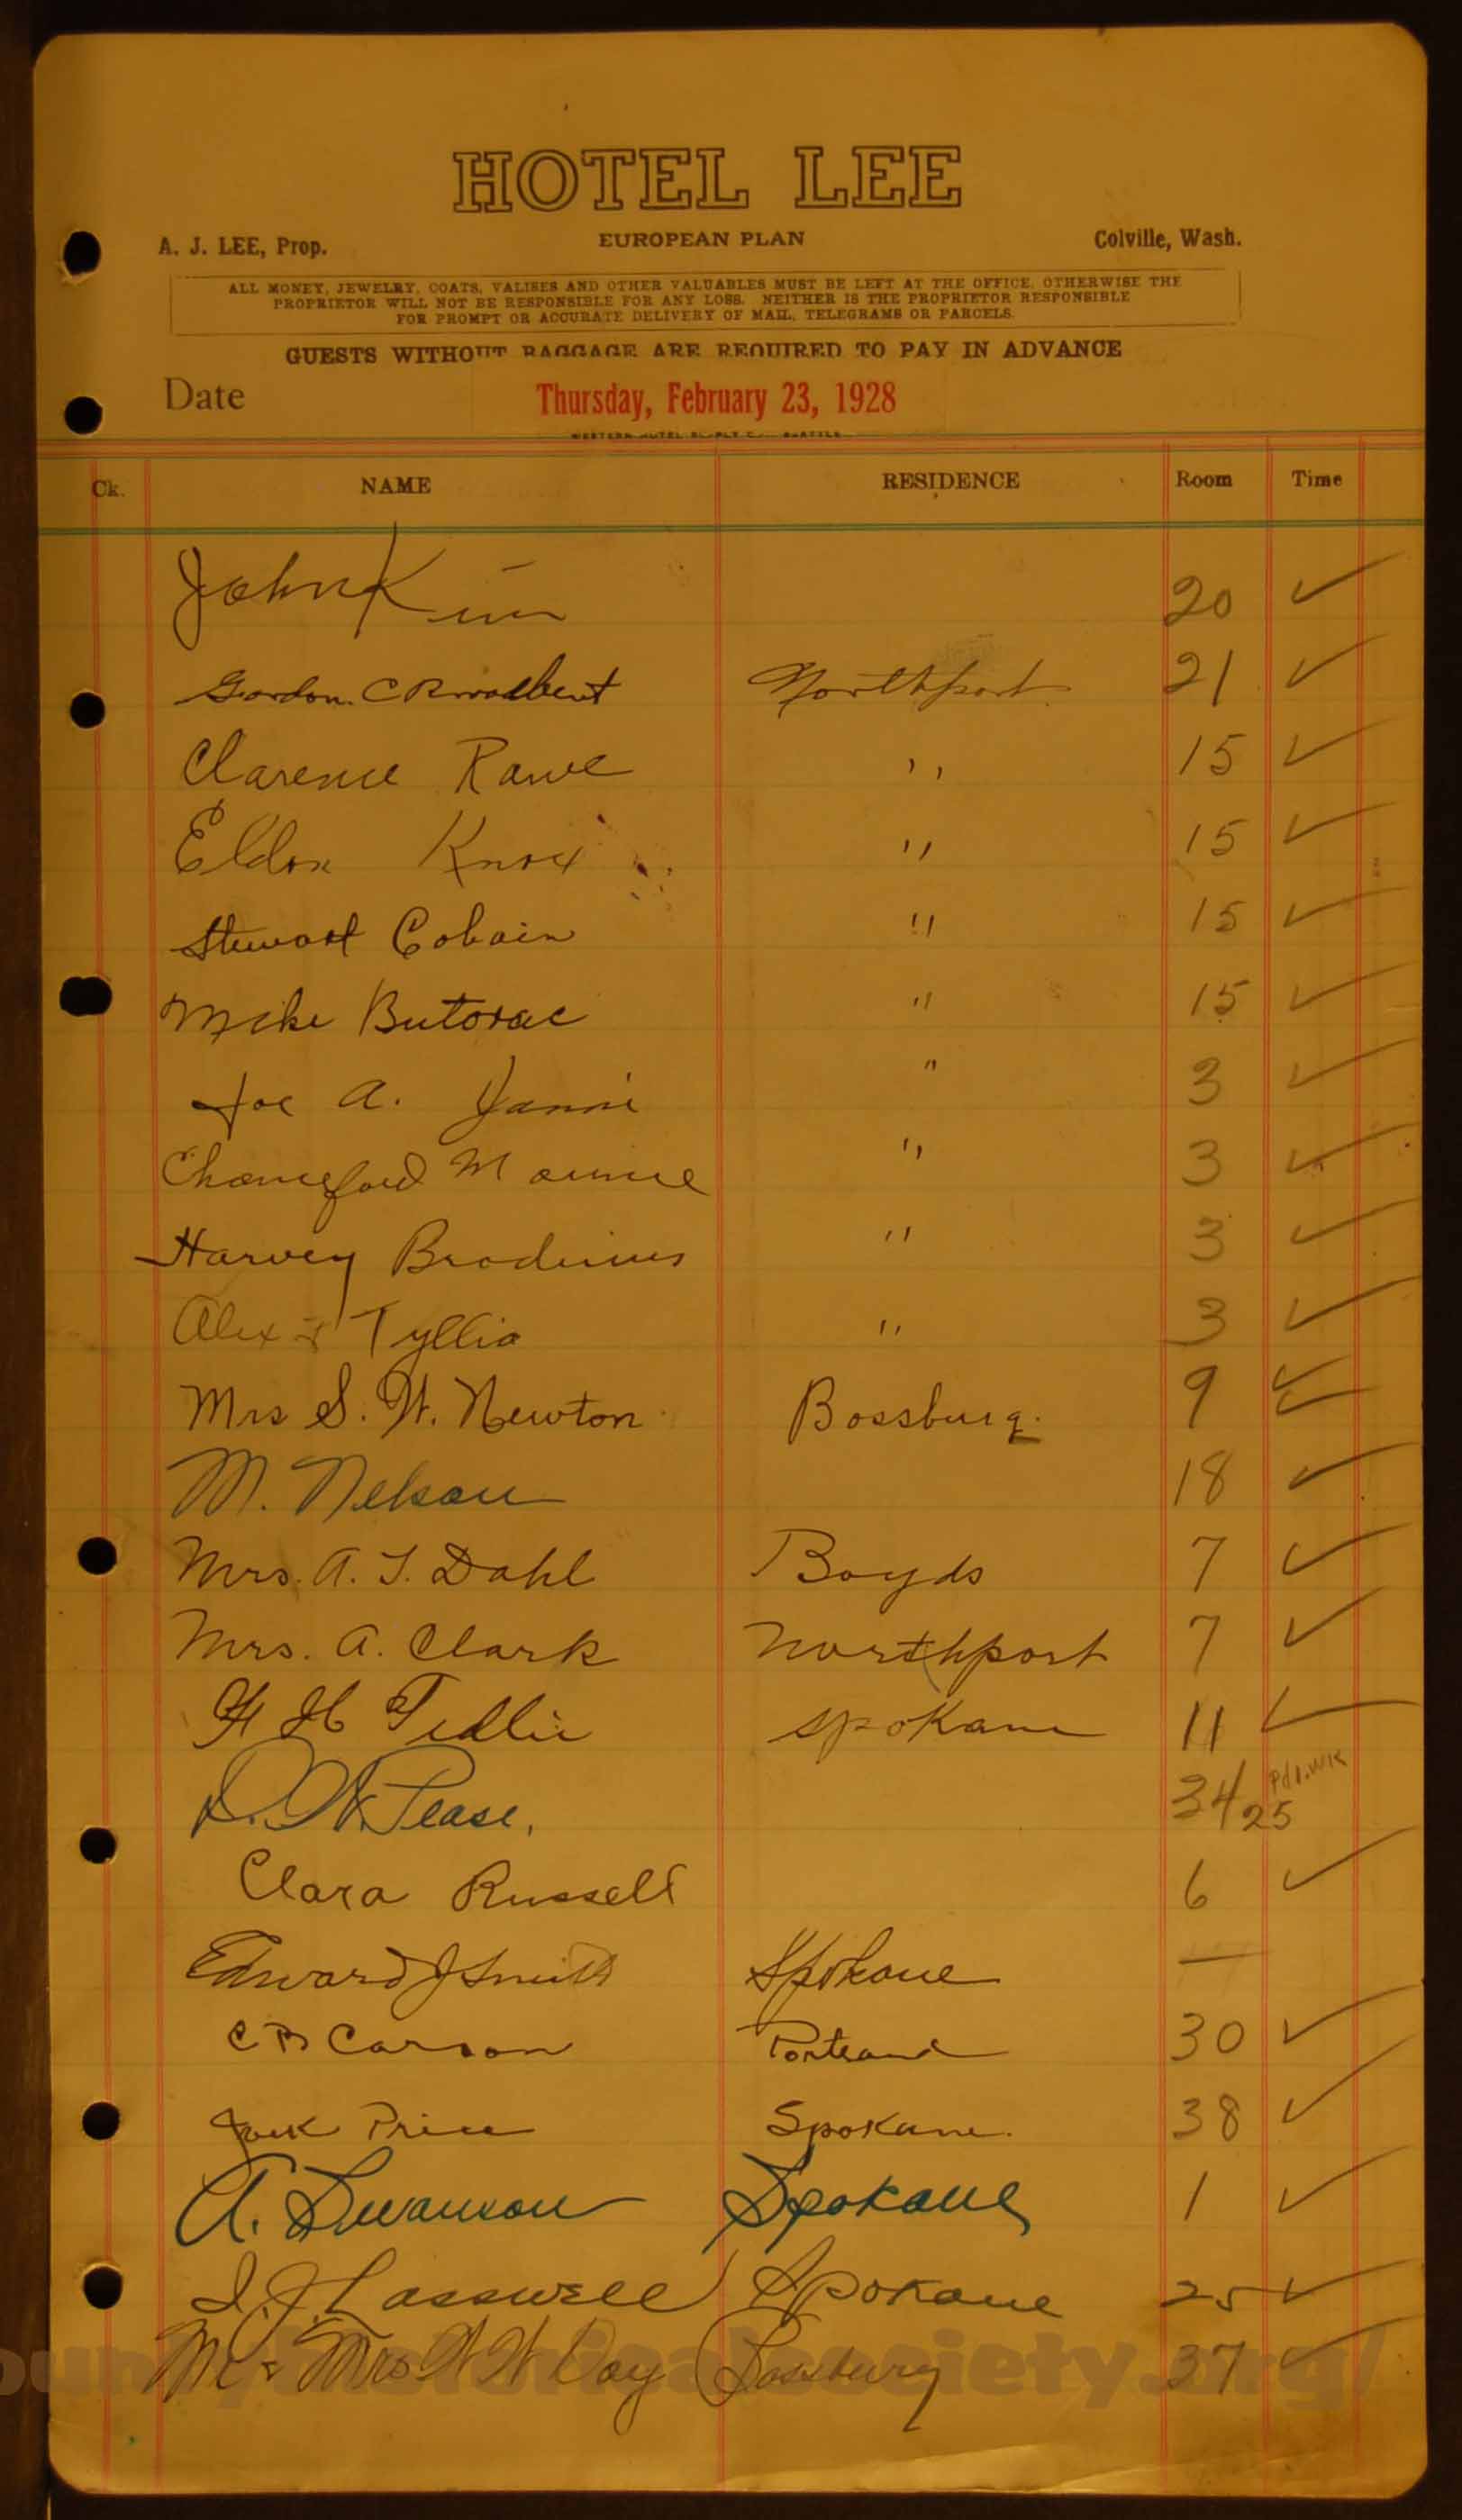 HOTEL LEE
A. J. LEE, Prop. EUROPEAN PLAN Colville, Wash.
ALL MONEY, JEWELRY, COATS, VALISES AND OTHER VALUABLES MUST BE LEFT AT THE OFFICE, OTHERWISE THE
PROPRIETOR WILL NOT BE RESPONSIBLE FOR ANY LOSS. NEITHER IS THE PROPRIETOR RESPONSIBLE
FOR PROMPT OR ACCURATE DELIVERY OF MAIL, TELEGRAMS OR PARCELS.
GUESTS WITHOUT BAGGAGE ARE REQUIRED TO PAY IN ADVANCE
Date Thursday, February 23, 1928
Ck. NAME RESIDENCE Room Time
John 20 ✓
Gordon C Broadbent Northport 21 ✓
Clarence Rowe " 15 ✓
Eldon Knox " 15 ✓
Stewart Cobain " 15 ✓
Mike Butorac " 15 ✓
Joe A. Janni " 3 ✓
" 3 ✓
Harvey " 3 ✓
Alex Tyllia " 3 ✓
Mrs S. W. Newton Bossburg. 9 ✓
M. Nelson 18 ✓
Mrs. A. T. Dahl Boyds 7 ✓
Mrs. A. Clark Northport 7 ✓
Spokane 11 ✓
Pease. 34 25 Pd 1. WK
Clara Russell 6 ✓
Edward J Smith Spokane —
C B Carson Portland 30 ✓
Jack Price Spokane. 38 ✓
A. Swanson Spokane 1 ✓
J. Lasswell Spokane 25 ✓
Mr & Mrs W W Day Bossburg 37 ✓